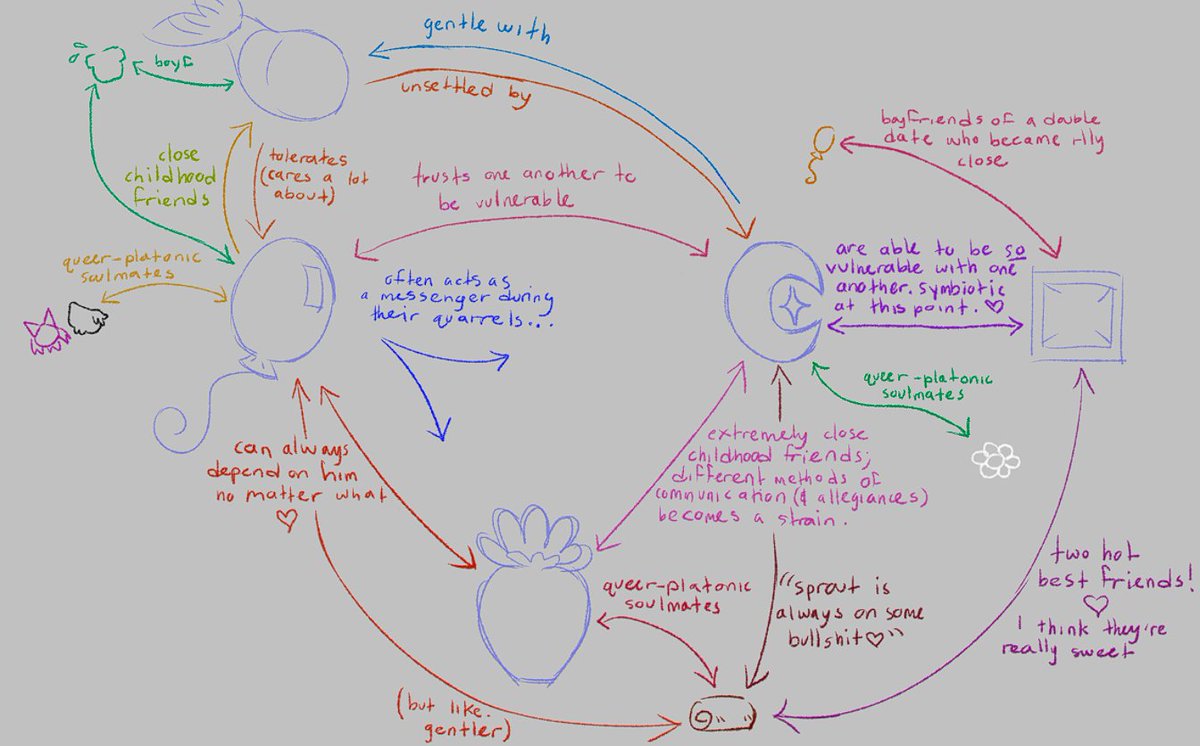 gentle with
boyf
unsettled by
boyfriends of a double
date who became rlly
close
close
childhood
friends
tolerates
(cares a lot
about)
trusts one another to
be vulnerable
queer-platonic
soulmates
often acts as
a messenger during
their quarrels...
are able to be so
vulnerable with one
another. symbiotic
at this point. ♡
queer-platonic
soulmates
can always
depend on him
no matter what
♡
extremely close
childhood friends;
different methods of
communication (& allegiances)
becomes a strain.
queer-platonic
soulmates
"sprout is
always on some
bullshit♡"
two hot
best friends!
♡
I think they're
really sweet
(but like.
gentler)